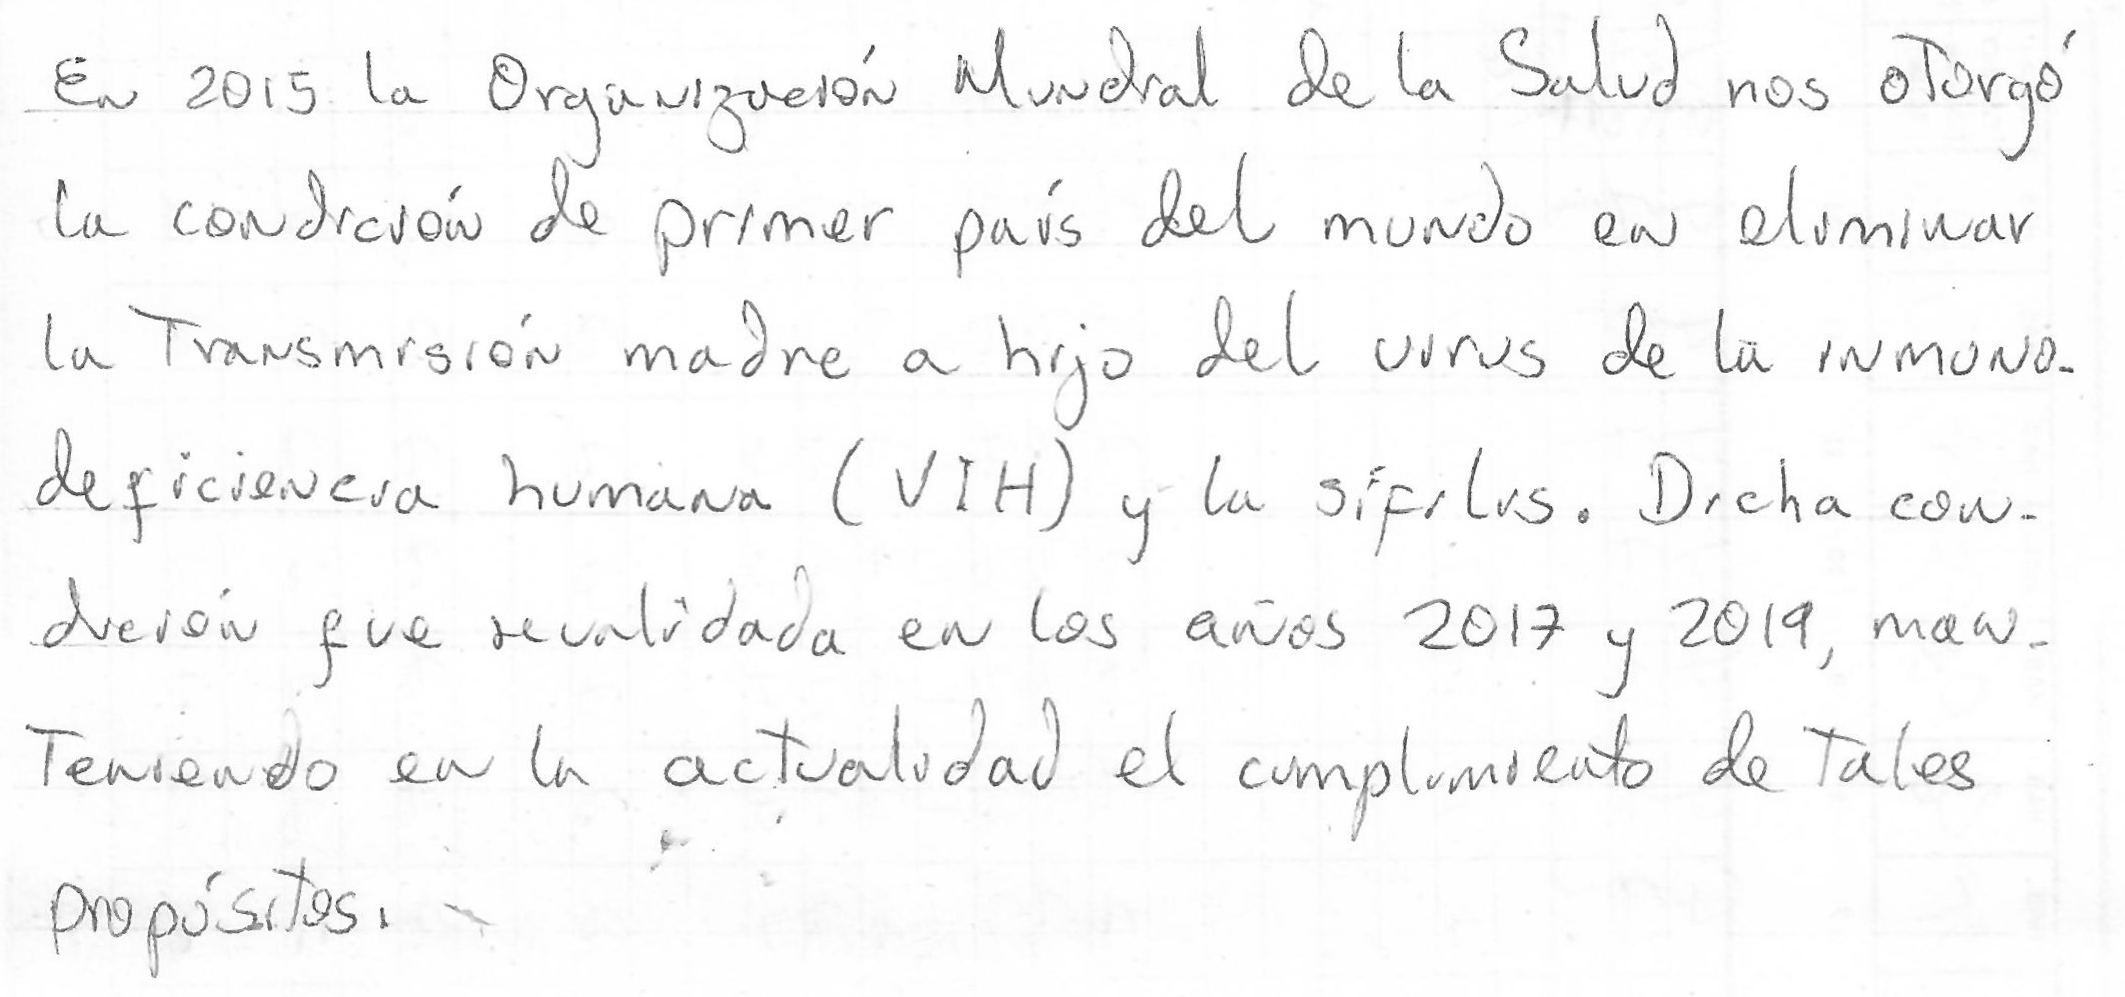 En 2015 la Organización Mundial de la Salud nos otorgó
la condición de primer país del mundo en eliminar
la Transmisión madre a hijo del virus de la inmuno-
deficiencia humana (VIH) y la sífilis. Dicha con-
dición fue revalidada en los años 2017 y 2019, man-
Teniendo en la actualidad el cumplimiento de Tales
propósitos.